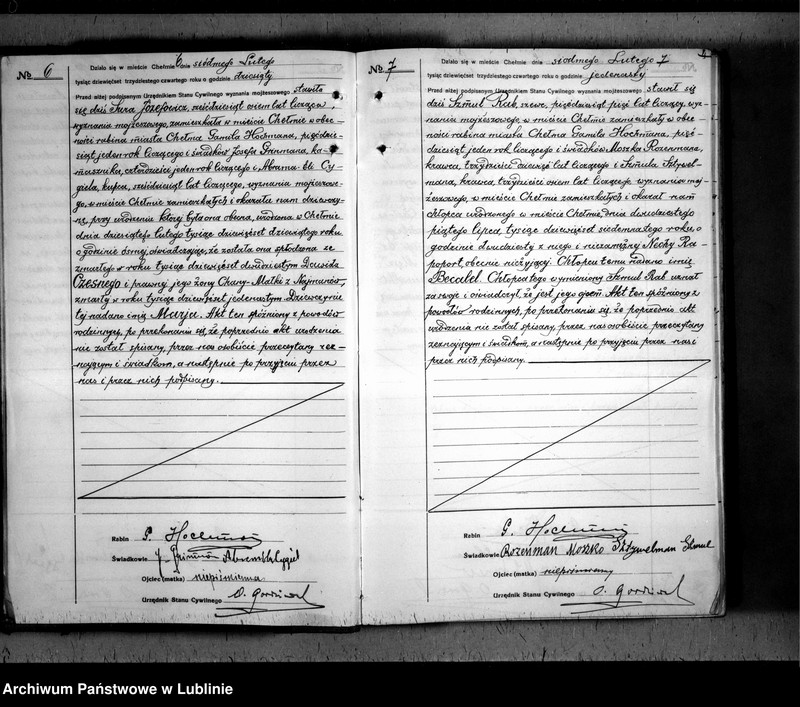 № 6
Działo się w mieście Chełmie dnia siódmego Lutego
tysiąc dziewięćset trzydziestego czwartego roku o godzinie dziesiątej
Przed niżej podpisanym Urzędnikiem Stanu Cywilnego wyznania mojżeszowego stawiła
się dziś Sura Józefowicz, sześćdziesiąt osiem lat licząca,
wyznania mojżeszowego, zamieszkała w mieście Chełmie w obec-
ności rabina miasta Chełma Gamila Hochmana, pięćdzie-
siąt jeden rok liczącego i świadków Josefa Grinmana, ka-
masznika, czterdzieści jeden rok liczącego i Abrama-Il. Cy-
giela, kupca, sześćdziesiąt lat liczącego, wyznania mojżeszowe-
go, w mieście Chełmie zamieszkałych i okazała nam dziewczy-
nę, przy urodzeniu której była ona obecna, urodzoną w Chełmie
dnia dziesiątego lutego tysiąc dziewięćset dziesiątego roku
o godzinie ósmej, oświadczając, że została ona spłodzona ze
zmarłego w roku tysiąc dziewięćset dwudziestym Dawida
Czesnego i prawnej jego żony Chany-Małki z Najmanów,
zmarłej w roku tysiąc dziewięćset jedenastym Dziewczynie
tej nadano imię Murja. Akt ten spóźniony z powodów
rodzinnych, po przekonaniu się, że poprzednio akt urodzenia
nie został spisany, przez nas osobiście przeczytany zez-
nającym i świadkom, a następnie po przyjęciu przez
nas i przez nich podpisany.
Rabin G. Hochman
Świadkowie J. Grinman Abram Cygiel
Ojciec (matka) niepiśmienna
Urzędnik Stanu Cywilnego
№ 7
Działo się w mieście Chełmie dnia siódmego Lutego
tysiąc dziewięćset trzydziestego czwartego roku o godzinie jedenastej
Przed niżej podpisanym Urzędnikiem Stanu Cywilnego wyznania mojżeszowego stawił się
dziś Szmul Rab, szewc, pięćdziesiąt pięć lat liczący, wyz-
nania mojżeszowego w mieście Chełmie zamieszkały w obec-
ności rabina miasta Chełma Gamila Hochmana, pięć-
dziesiąt jeden rok liczącego i świadków Moszka Rozenmana,
krawca, trzydzieści dziewięć lat liczącego i Szmula Sztywel-
mana, krawca, trzydzieści osiem lat liczącego wyznania moj-
żeszowego, w mieście Chełmie zamieszkałych i okazał nam
chłopca urodzonego w mieście Chełmie, dnia dwudziestego
piątego lipca, tysiąc dziewięćset siedemnastego roku, o
godzinie dwudziestej z niego i niezamężnej Nechy Ra-
poport, obecnie nieżyjącej. Chłopcu temu nadano imię
Becalel. Chłopca tego wymieniony Szmul Rab uznał
za swoje i oświadczył, że jest jego ojcem. Akt ten spóźniony z
powodów rodzinnych, po przekonaniu się, że poprzednio akt
urodzenia nie został spisany, przez nas osobiście przeczytany
zeznającym i świadkom, a następnie po przyjęciu przez nas i
przez nich podpisany.
Rabin G. Hochman
Świadkowie Rozenman Moszko Sztywelman Szmul
Ojciec (matka) niepiśmienny
Urzędnik Stanu Cywilnego
Archiwum Państwowe w Lublinie